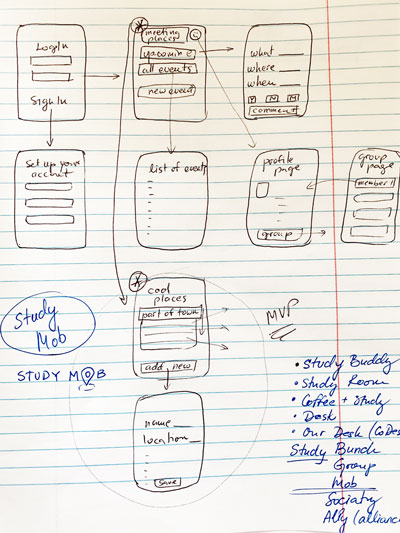 LogIn
SignIn
meeting places
upcoming
all events
new event
what
where
when
Y
N
M
comment
Set up your account
list of events
profile page
group
group page
member 1
cool places
part of town
add new
MVP
name
location
save
Study Mob
STUDY MOB
• Study Buddy
• Study Room
• Coffee + Study
• Desk
• Our Desk (CoDes
Study Bunch
Group
Mob
Society
Ally (allianc